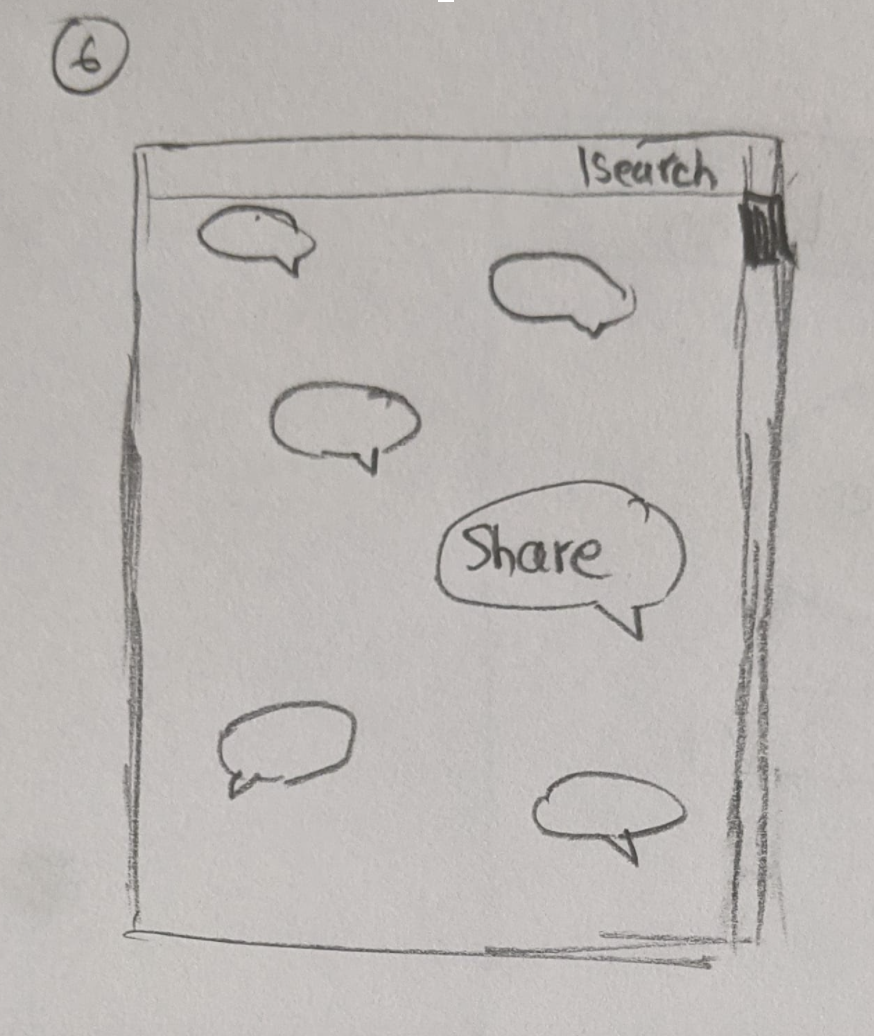 6
Search
Share